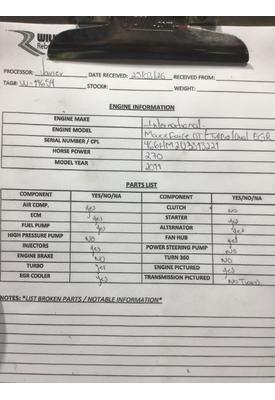 PROCESSOR: Javier DATE RECEIVED: 25/03/26 RECEIVED FROM:
TAG#: STOCK#: WEIGHT:
ENGINE INFORMATION
ENGINE MAKE International
ENGINE MODEL MaxxForce DT
SERIAL NUMBER / CPL
HORSE POWER 270
MODEL YEAR 2011
PARTS LIST
COMPONENT YES/NO/NA COMPONENT YES/NO/NA
AIR COMP. yes CLUTCH NO
ECM yes STARTER yes
FUEL PUMP yes ALTERNATOR yes
HIGH PRESSURE PUMP NO FAN HUB yes
INJECTORS yes POWER STEERING PUMP NO
ENGINE BRAKE NO TURN 360 NO
TURBO yes ENGINE PICTURED yes
EGR COOLER yes TRANSMISSION PICTURED No Trans.
NOTES: *LIST BROKEN PARTS / NOTABLE INFORMATION*